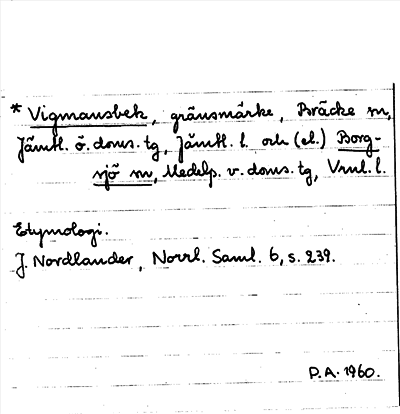 * Vigmansbek, gränsmärke, Bräcke sn,
Jämtl. ö. doms. tg, Jämtl. l. och (el.) Borg-
sjö sn, Medelp. v. doms. tg, Vnl. l.
Etymologi.
J. Nordlander, Norrl. Saml. 6, s. 239.
P.A. 1960.